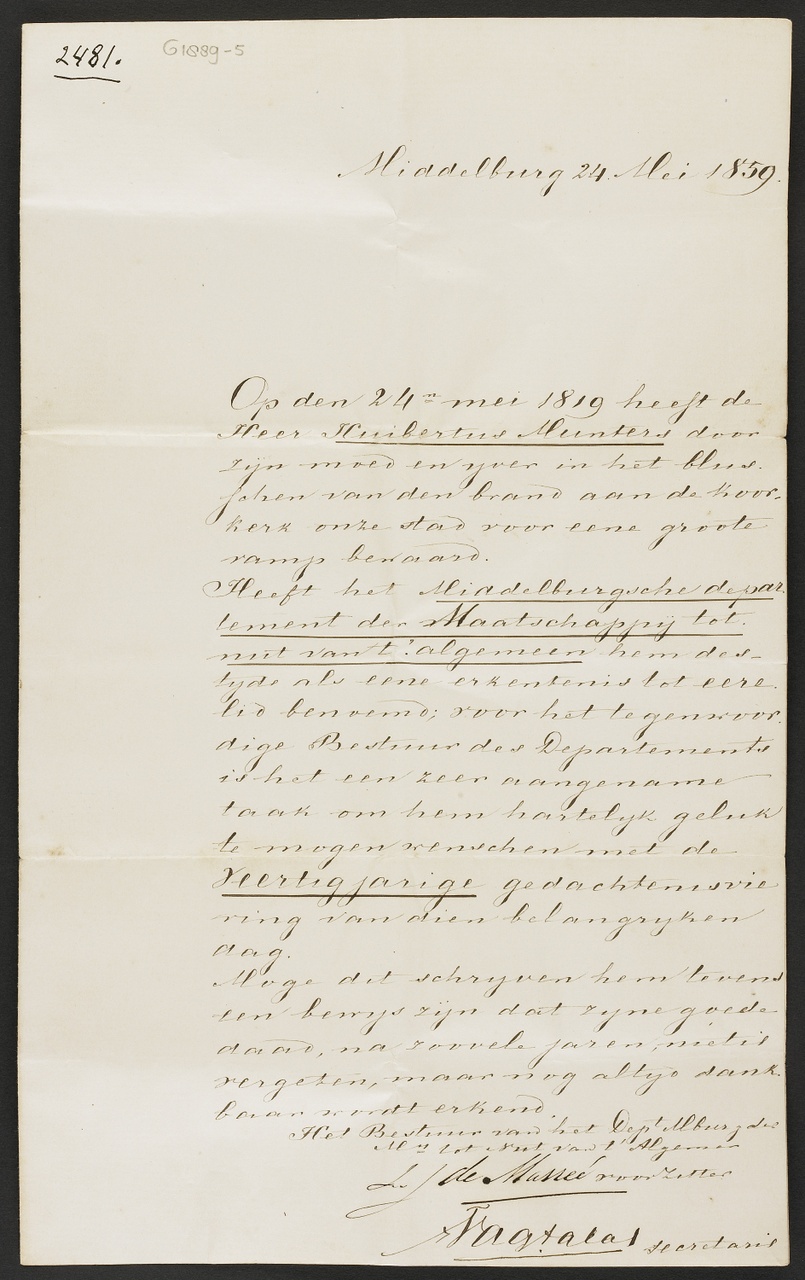 2481.
G1889-5
Middelburg 24 Mei 1859.
Op den 24n mei 1819 heeft de
Heer Huibertus Munters door
zijn moed en yver in het blus-
schen van den brand aan de koor-
kerk onze stad voor eene groote
ramp bewaard.
Heeft het Middelburgsche depar-
tement der Maatschappij tot
nut van t' algemeen hem des-
tyds als eene erkentenis tot eere
lid benoemd; voor het tegenwoor-
dige Bestuur des Departements
is het een zeer aangename
taak om hem hartelyk geluk
te mogen wenschen met de
Veertigjarige gedachtenisvie
ring van dien belangryken
dag.
Moge dit schryven hem tevens
een bewys zyn dat zyne goede
daad, na zoovele jaren, niet is
vergeten, maar nog altyd dank-
baar wordt erkend.
Het Bestuur van het Dept Mburg der
Mij tot Nut van t' Algemeen
L. J de Marrée voorzitter
secretaris